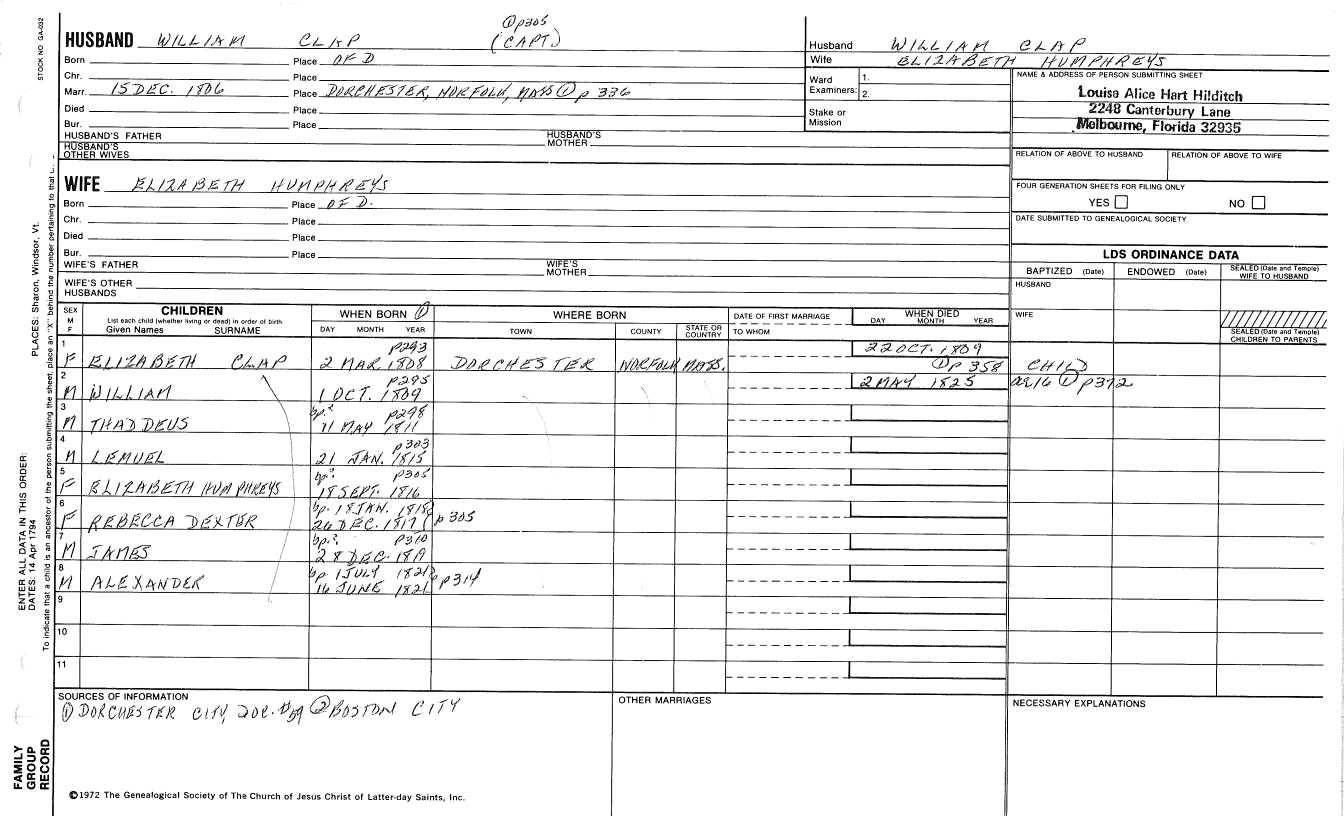 STOCK NO. GA-032
① p305
HUSBAND WILLIAM CLAP (CAPT)
Born Place OF D
Chr. Place
Marr. 15 DEC. 1806 Place DORCHESTER, NORFOLK, MASS ① p 336
Died Place
Bur. Place
HUSBAND'S FATHER HUSBAND'S MOTHER
HUSBAND'S OTHER WIVES
WIFE ELIZABETH HUMPHREYS
Born Place OF D.
Chr. Place
Died Place
Bur. Place
WIFE'S FATHER WIFE'S MOTHER
WIFE'S OTHER HUSBANDS
Husband WILLIAM CLAP
Wife ELIZABETH HUMPHREYS
Ward Examiners: 1. 2.
Stake or Mission
NAME & ADDRESS OF PERSON SUBMITTING SHEET
Louise Alice Hart Hilditch
2248 Canterbury Lane
Melbourne, Florida 32935
RELATION OF ABOVE TO HUSBAND RELATION OF ABOVE TO WIFE
FOUR GENERATION SHEETS FOR FILING ONLY
YES NO
DATE SUBMITTED TO GENEALOGICAL SOCIETY
LDS ORDINANCE DATA
BAPTIZED (Date) ENDOWED (Date) SEALED (Date and Temple) WIFE TO HUSBAND
HUSBAND
WIFE
SEALED (Date and Temple) CHILDREN TO PARENTS
SEX M F
CHILDREN
List each child (whether living or dead) in order of birth
Given Names SURNAME
WHEN BORN ①
DAY MONTH YEAR
WHERE BORN
TOWN COUNTY STATE OR COUNTRY
DATE OF FIRST MARRIAGE
TO WHOM
WHEN DIED
DAY MONTH YEAR
1 p293 22 OCT. 1809
F ELIZABETH CLAP 2 MAR. 1808 DORCHESTER NORFOLK MASS. ① p 358 CHILD
2 p295 2 MAY 1825 ae16 ① p372
M WILLIAM 1 OCT. 1809
3 bp.? p298
M THADDEUS 11 MAY 1811
4 p303
M LEMUEL 21 JAN. 1815
5 bp.? p305
F ELIZABETH HUMPHREYS 18 SEPT. 1816
6 bp. 18 JAN. 1818
F REBECCA DEXTER 26 DEC. 1817 p305
7 bp.? p310
M JAMES 28 DEC. 1819
8 bp 1 JULY 1821
M ALEXANDER 16 JUNE 1821 p314
9
10
11
SOURCES OF INFORMATION
① DORCHESTER CITY, 2 OR. #59 ② BOSTON CITY
OTHER MARRIAGES
NECESSARY EXPLANATIONS
©1972 The Genealogical Society of The Church of Jesus Christ of Latter-day Saints, Inc.
FAMILY GROUP RECORD
ENTER ALL DATA IN THIS ORDER:
DATES: 14 Apr 1794 PLACES: Sharon, Windsor, Vt.
To indicate that a child is an ancestor of the person submitting the sheet, place an "X" behind the number pertaining to that